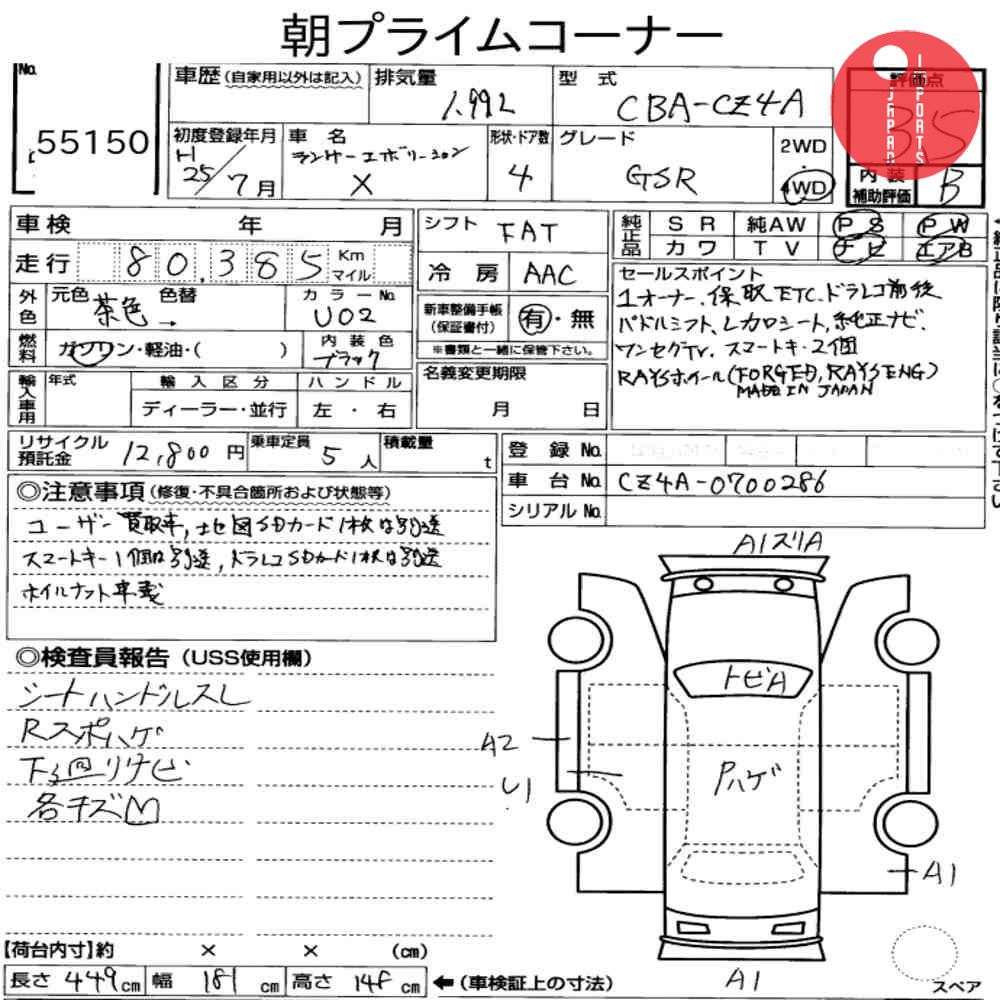 朝プライムコーナー
No.
55150
車歴 (自家用以外は記入)
排気量
1.992
型式
CBA-CZ4A
評価点
35
JAPAN
IMPORTS
初度登録年月
H
25/7月
車名
ランサーエボリューション
X
形状・ドア数
4
グレード
GSR
2WD
・
4WD
内装
補助評価
B
車検 年 月
シフト FAT
純正品
SR 純AW PS PW
カワ TV ナビ エアB
走行 80,385 Km マイル
冷房 AAC
セールスポイント
1オーナー、保取、ETC、ドラレコ前後
パドルシフト、レカロシート、純正ナビ、
ワンセグTV、スマートキー2個
RAYSホイール(FORGED, RAYS ENG)
MADE IN JAPAN
外色
元色 茶色 色替 →
カラーNo.
U02
新車整備手帳
(保証書付)
有・無
※書類と一緒に保管下さい。
燃料
ガソリン・軽油・( )
内装色
ブラック
名義変更期限
月 日
輸入車用
年式
輸入区分
ディーラー・並行
ハンドル
左・右
リサイクル
預託金
12,800円
乗車定員
5人
積載量
t
登録No.
車台No. CZ4A-0700286
シリアルNo.
◎注意事項 (修復・不具合箇所および状態等)
ユーザー買取車,地図SDカード1枚は別送
スマートキー1個は別送,ドラレコSDカード1枚は別送
ホイルナット車載
◎検査員報告 (USS使用欄)
シートハンドルスレ
Rスポハゲ
下廻りサビ
各キズM
A1スリA
トビA
A2
U1
Pハゲ
A1
A1
【荷台内寸】約 × × (cm)
長さ 449cm 幅 181cm 高さ 148cm
←(車検証上の寸法)
スペア